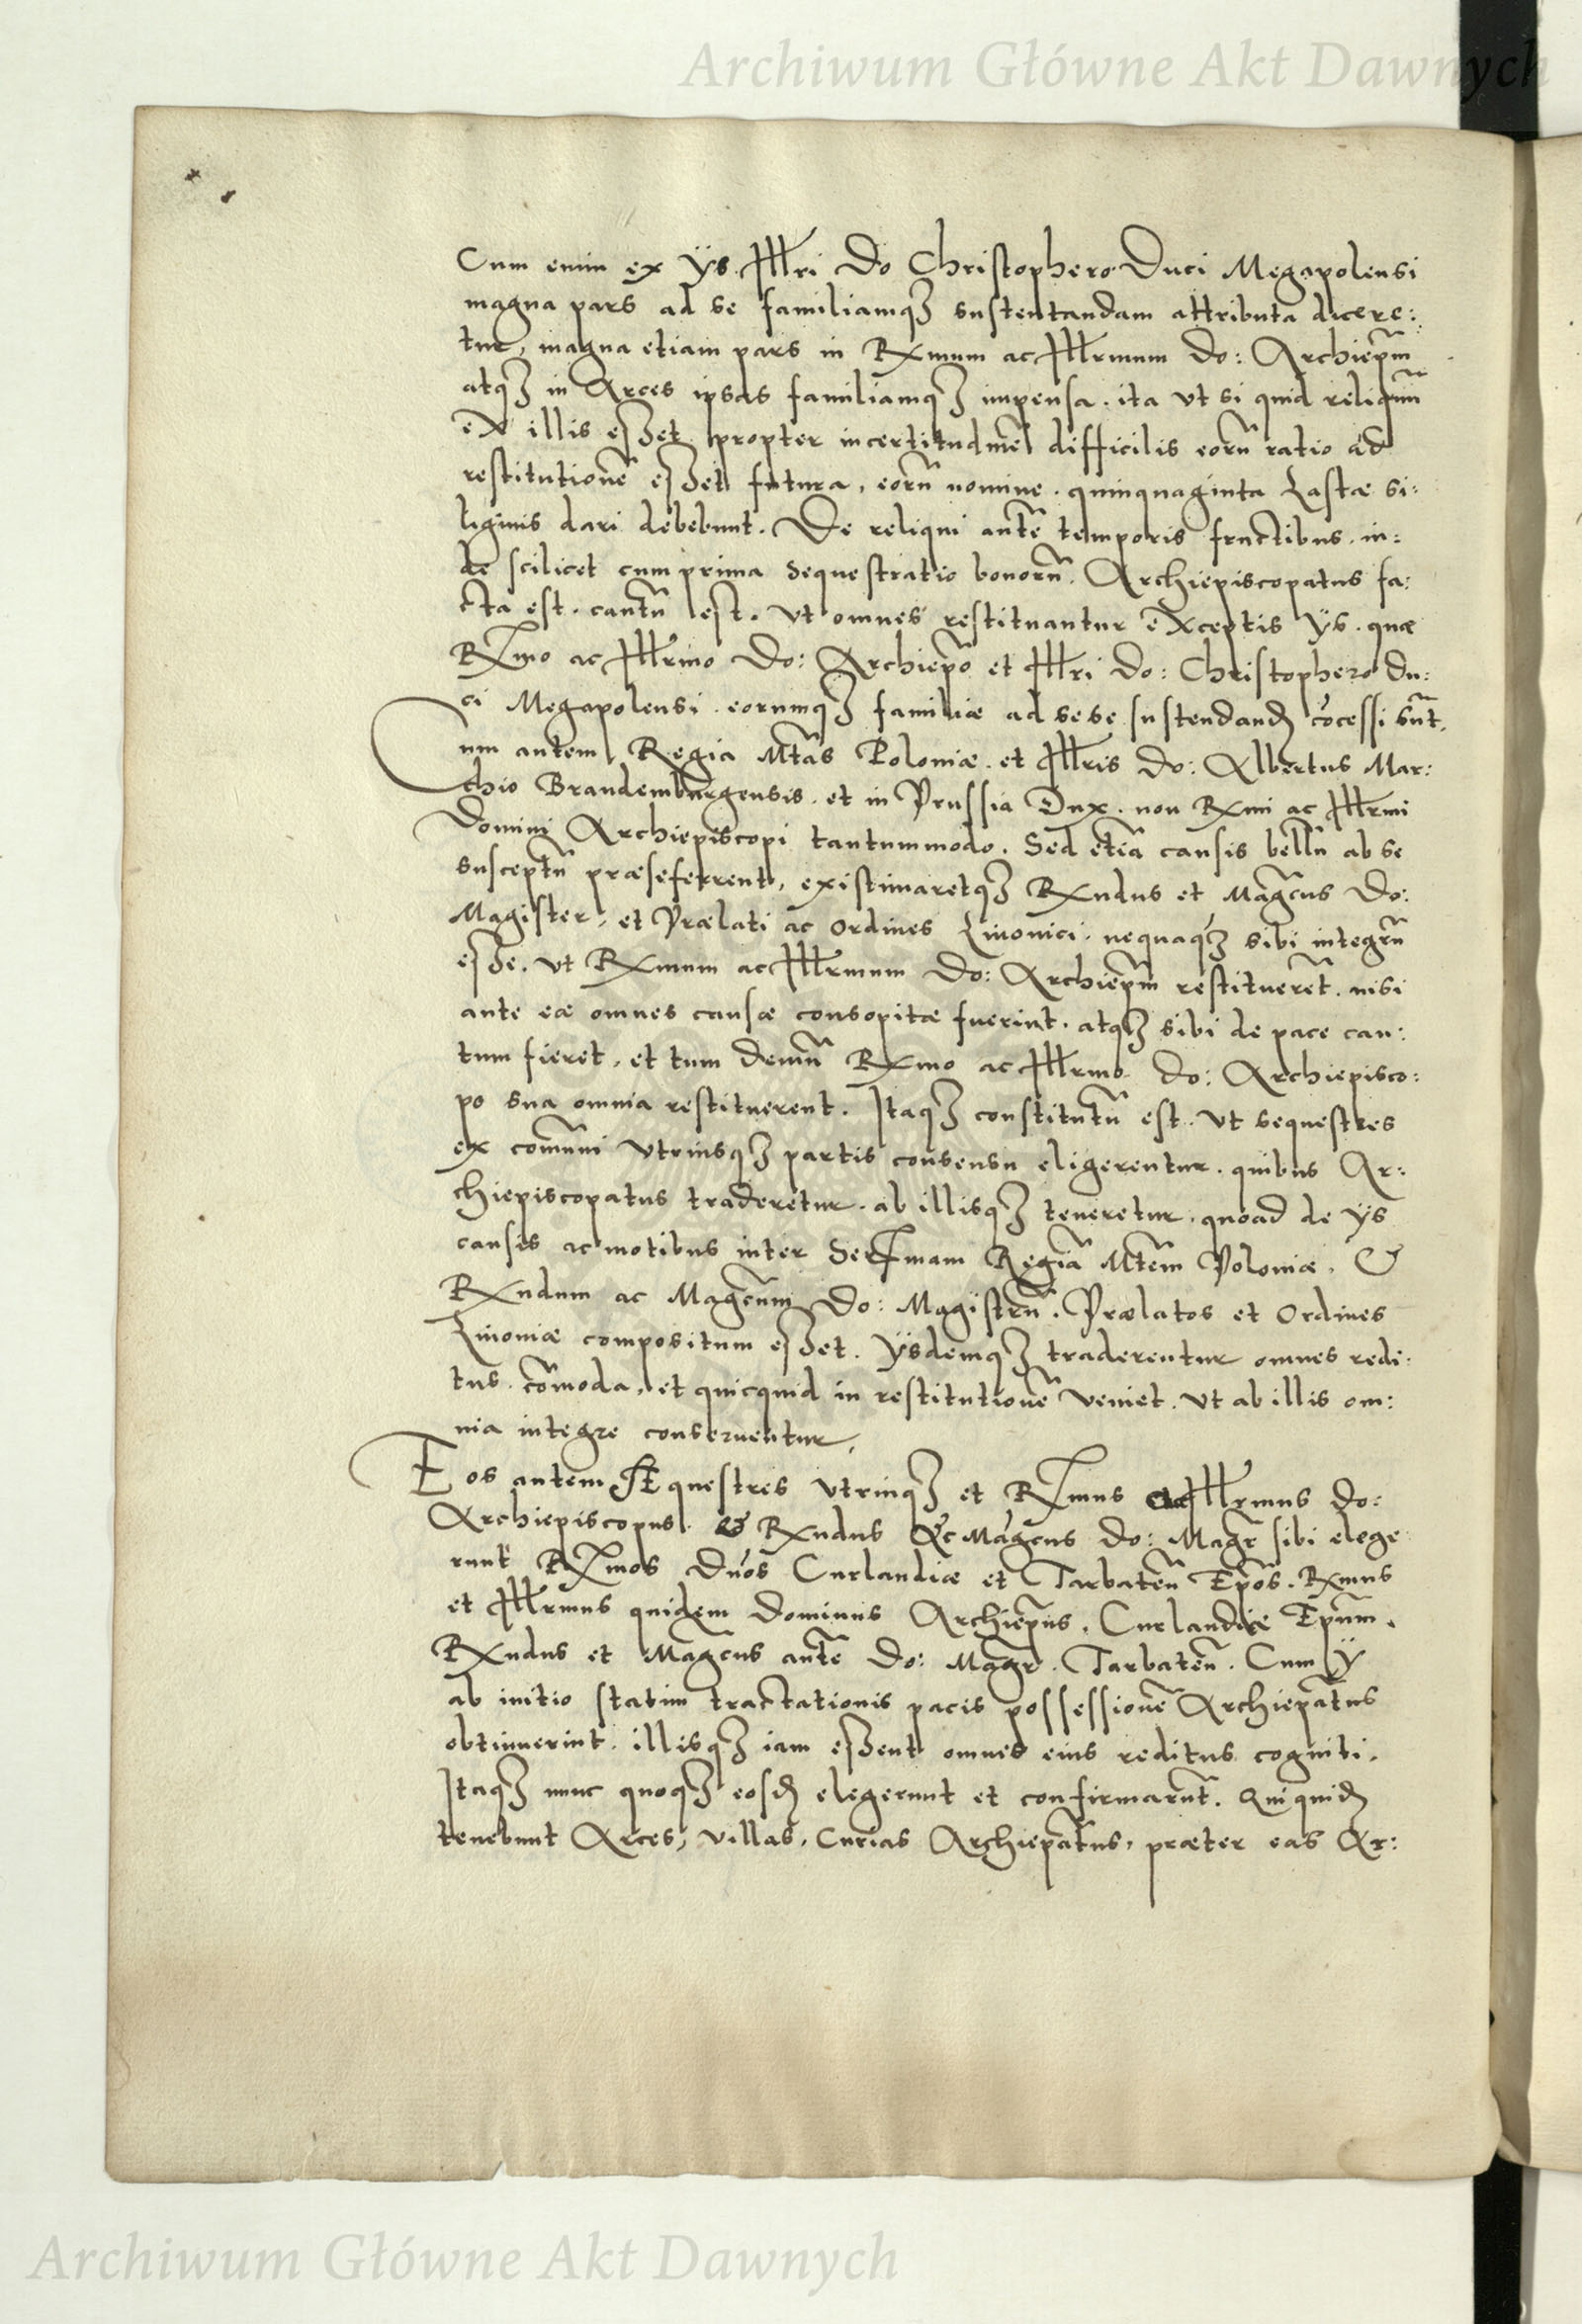 Archiwum Główne Akt Dawnych
Cum enim ex ÿs Illri Do Christophero Duci Megapolensi
magna pars ad se familiamq₃ sustentandam attributa dicere:
tur, magna etiam pars in Rxmum ac Illrmum Do: Archiepm̃
atq₃ in Arces ipsas familiamq₃ impensa. ita vt si quid reliquũ
ex illis esset propter incertitudinẽ difficilis eorũ ratio ad
restitutionẽ esset futura, eorũ nomine. quinquaginta Lastæ si:
liginis dari debebunt. De reliqui autẽ temporis fructibus. in:
de scilicet cum prima sequestratio bonorũ. Archiepiscopatus fa:
cta est. cautũ est. vt omnes restituantur exceptis ÿs. quæ
Rxmo ac Illrmo Do: Archiepõ et Illri Do: Christophero Du:
ci Megapolensi. eorumq₃ familiæ ad sese sustendanđ cõcessi sũt.
Cum autem Regia Mtãs Poloniæ. et Illris Do: Albertus Mar:
chio Brandemburgensis. et in Prussia Dux. non Rxmi ac Illrmi
Domini Archiepiscopi tantummodo. Sed etiã causis bellũ ab se
susceptũ præseferrent, existimaretq₃ Rxndus et Magcũs Do:
Magister, et Prælati ac Ordines Liuonici. nequaq₃ sibi integrũ
esse. vt Rxmum ac Illrmum Do: Archiepm̃ restituerẽt. nisi
ante eæ omnes causæ consopitæ fuerint. atq₃ sibi de pace cau:
tum fieret, et tum demũ Rxmo ac Illrmo Do: Archiepisco:
po sua omnia restituerent. Itaq₃ constitutũ est. vt sequestres
ex comũni vtriusq₃ partis consensu eligerentur. quibus Ar:
chiepiscopatus traderetur. ab illisq₃ teneretur, quoad de ÿs
causis ac motibus inter Serxmam Regiã Mtẽm Poloniæ. &
Rxndum ac Magcũm Do: Magistrũ. Prælatos et Ordines
Liuoniæ compositum esset. ÿsdemq₃ traderentur omnes redi:
tus. cõmoda, et quicquid in restitutionẽ veniet. vt ab illis om:
nia integre conseruentur.
Eos autem Sequestres vtrinq₃ et Rxmus ac Illrmus Do:
Archiepiscopus. & Rxndus ac Magcus Do: Magr̃ sibi elege
runt Rxmos Duos Curlandiæ et Tarbatẽn Epõs. Rxmus
et Illrmus quidem Dominus Archiepũs, Curlandiæ Epũm.
Rxndus et Magcũs autẽ Do: Magr̃. Tarbatẽn. Cum ÿ
ab initio statim tractationis pacis possessionẽ Archiepãtus
obtinuerint. illisq₃ iam essent omnes eius reditus cogniti.
Itaq₃ nunc quoq₃ eosđ elegerunt et confirmarũt. Qui quiđ
tenebunt Arces, villas, Curias Archiepãtus, præter eas Ar:
Archiwum Główne Akt Dawnych